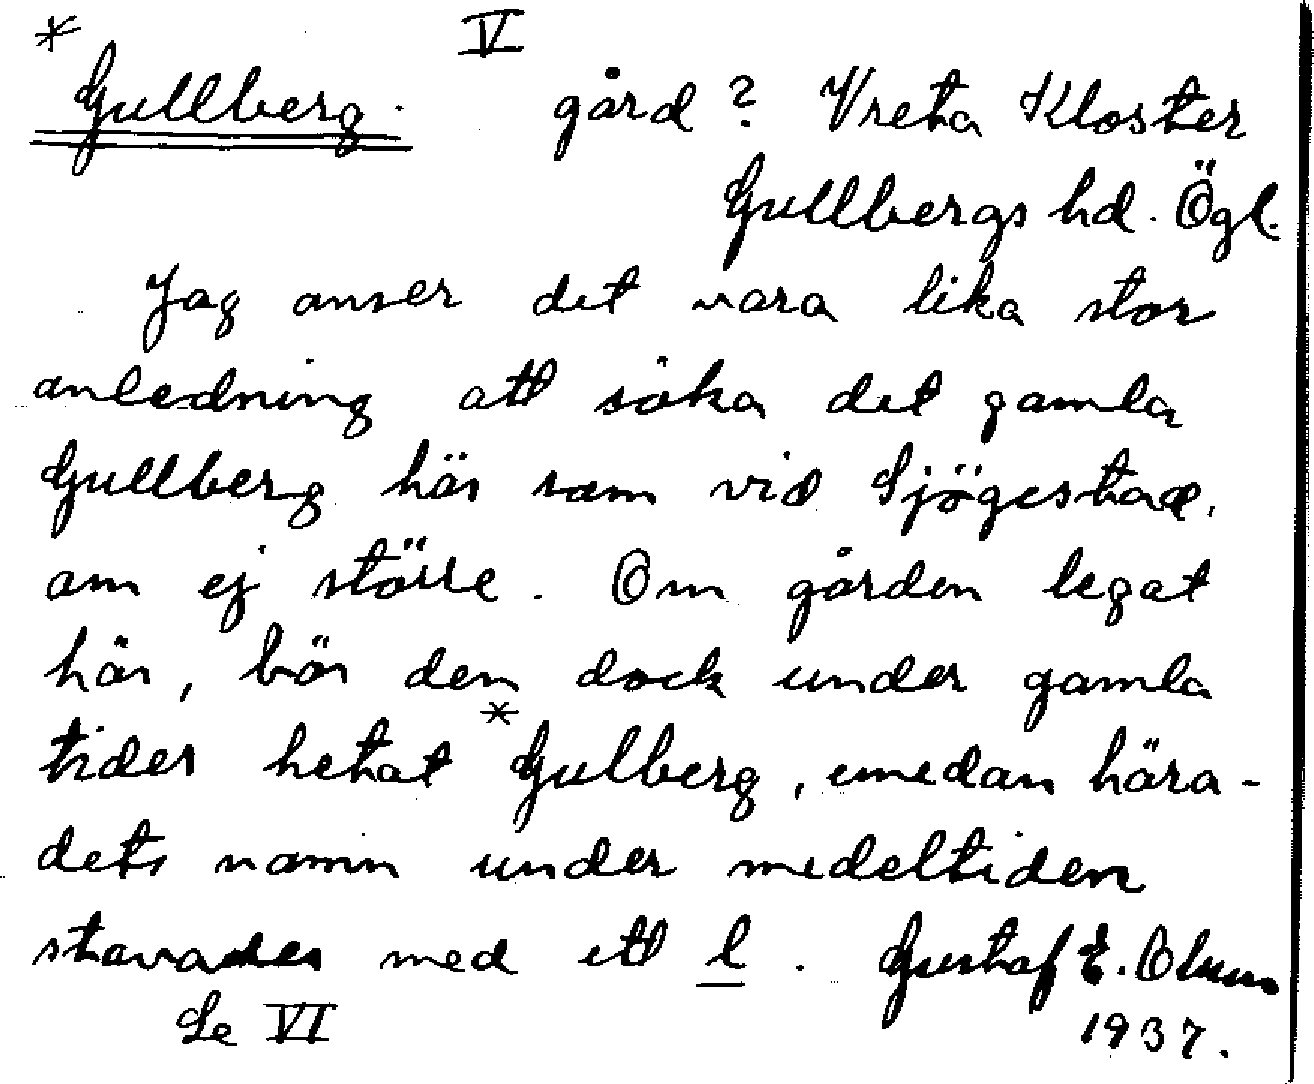 * Gullberg. V gård? Vreta Kloster
Gullbergs hd. Ögl.
Jag anser det vara lika stor
anledning att söka det gamla
Gullberg här som vid Sjögestad,
om ej större. Om gården legat
här, bör den dock under gamla
tider hetat *Gulberg, emedan hära-
dets namn under medeltiden
stavades med ett l. Gustaf E. Olsson
Se VI 1937.